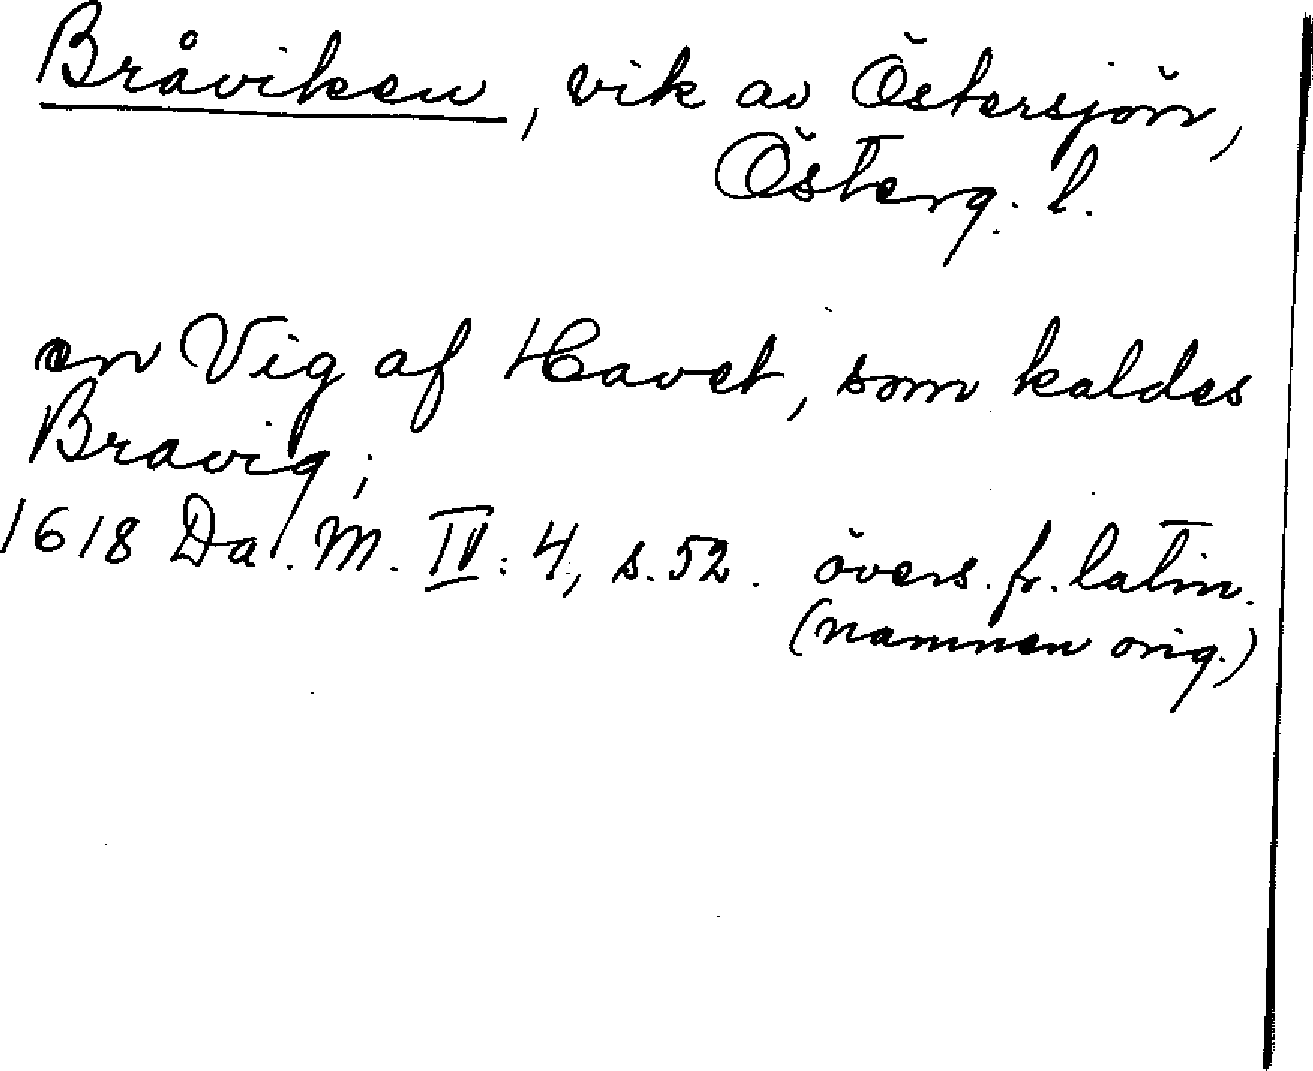 Bråviken, vik av Östersjön,
Österg. l.
en Vig af Havet, som kaldes
Bravig;
1618 Da. M. IV: 4, s. 52. övers. fr. latin.
(namnen orig.)